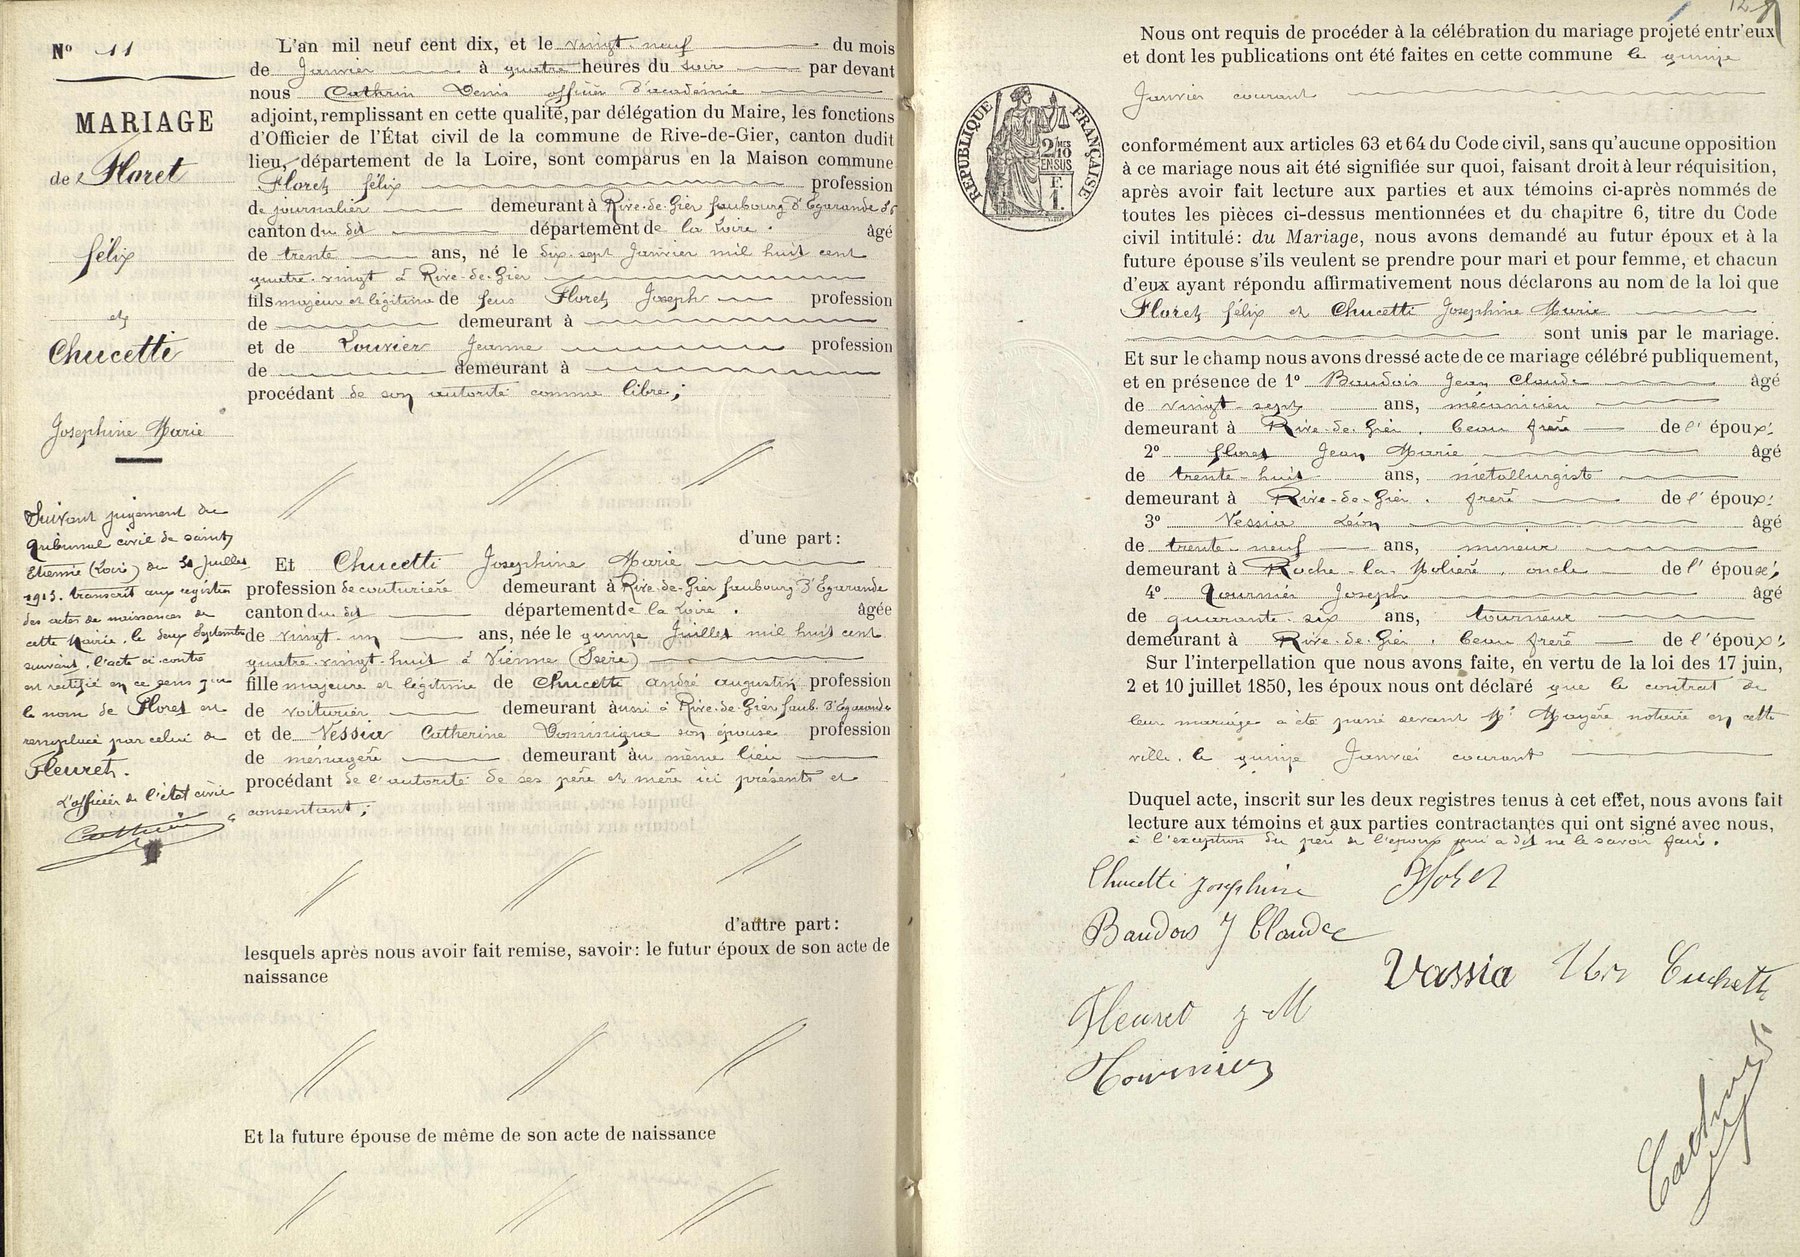 N° 11
MARIAGE
de Floret
félix
et
Chucetti
Josephine Marie
Suivant jugement du
tribunal civil de saint
Etienne (Loire) du 31 Juillet
1913. transcrit aux registres
des actes de naissances de
cette Mairie, le deux Septembre
suivant, l'acte ci-contre
est rectifié en ce sens que
le nom de Floret est
remplacé par celui de
Fleuret.
L'officier de l'état civil
Cathrin
L'an mil neuf cent dix, et le vingt-neuf du mois
de Janvier à quatre heures du soir par devant
nous Cathrin Denis officier d'académie
adjoint, remplissant en cette qualité, par délégation du Maire, les fonctions
d'Officier de l'État civil de la commune de Rive-de-Gier, canton dudit
lieu, département de la Loire, sont comparus en la Maison commune
Floret félix profession
de journalier demeurant à Rive-de-Gier faubourg d'Egarande
canton du dit département de la Loire. âgé
de trente ans, né le dix-sept Janvier mil huit cent
quatre-vingt à Rive-de-Gier
fils majeur et légitime de feus Floret Joseph profession
de demeurant à
et de Louvier Jeanne profession
de demeurant à
procédant de son autorité comme libre;
d'une part:
Et Chucetti Josephine Marie
profession de couturière demeurant à Rive-de-Gier faubourg d'Egarande
canton du dit département de la Loire. âgée
de vingt-un ans, née le quinze Juillet mil huit cent
quatre-vingt-huit à Vienne (Isère)
fille majeure et légitime de Chucetti andré augustin profession
de voiturier demeurant aussi à Rive-de-Gier faub. d'Egarande
et de Vessia Catherine Dominique son épouse profession
de ménagère demeurant au même lieu
procédant de l'autorité de ses père et mère ici présents et
consentant;
d'autre part:
lesquels après nous avoir fait remise, savoir: le futur époux de son acte de
naissance
Et la future épouse de même de son acte de naissance
Nous ont requis de procéder à la célébration du mariage projeté entr'eux
et dont les publications ont été faites en cette commune le quinze
Janvier courant
RÉPUBLIQUE FRANÇAISE
2/10
EN SUS
F.
1.
conformément aux articles 63 et 64 du Code civil, sans qu'aucune opposition
à ce mariage nous ait été signifiée sur quoi, faisant droit à leur réquisition,
après avoir fait lecture aux parties et aux témoins ci-après nommés de
toutes les pièces ci-dessus mentionnées et du chapitre 6, titre du Code
civil intitulé: du Mariage, nous avons demandé au futur époux et à la
future épouse s'ils veulent se prendre pour mari et pour femme, et chacun
d'eux ayant répondu affirmativement nous déclarons au nom de la loi que
Floret félix et Chucetti Josephine Marie
sont unis par le mariage.
Et sur le champ nous avons dressé acte de ce mariage célébré publiquement,
et en présence de 1° Baudois Jean Claude âgé
de vingt-sept ans, mécanicien
demeurant à Rive-de-Gier, beau frère de l'époux;
2° floret Jean Marie âgé
de trente-huit ans, métallurgiste
demeurant à Rive-de-Gier, frère de l'époux;
3° Vessia Léon âgé
de trente-neuf ans, mineur
demeurant à Roche-la-Molière, oncle de l'épouse;
4° Tournier Joseph âgé
de quarante-six ans, tourneur
demeurant à Rive-de-Gier, beau frère de l'époux;
Sur l'interpellation que nous avons faite, en vertu de la loi des 17 juin,
2 et 10 juillet 1850, les époux nous ont déclaré que le contrat de
leur mariage a été passé devant Me Mayère notaire en cette
ville, le quinze Janvier courant
Duquel acte, inscrit sur les deux registres tenus à cet effet, nous avons fait
lecture aux témoins et aux parties contractantes qui ont signé avec nous,
à l'exception du père de l'épouse qui a dit ne le savoir faire.
Chucetti Josephine Floret
Baudois J Claude
Vassia Cuchetti
Fleuret J M
Tournier
Cathrin